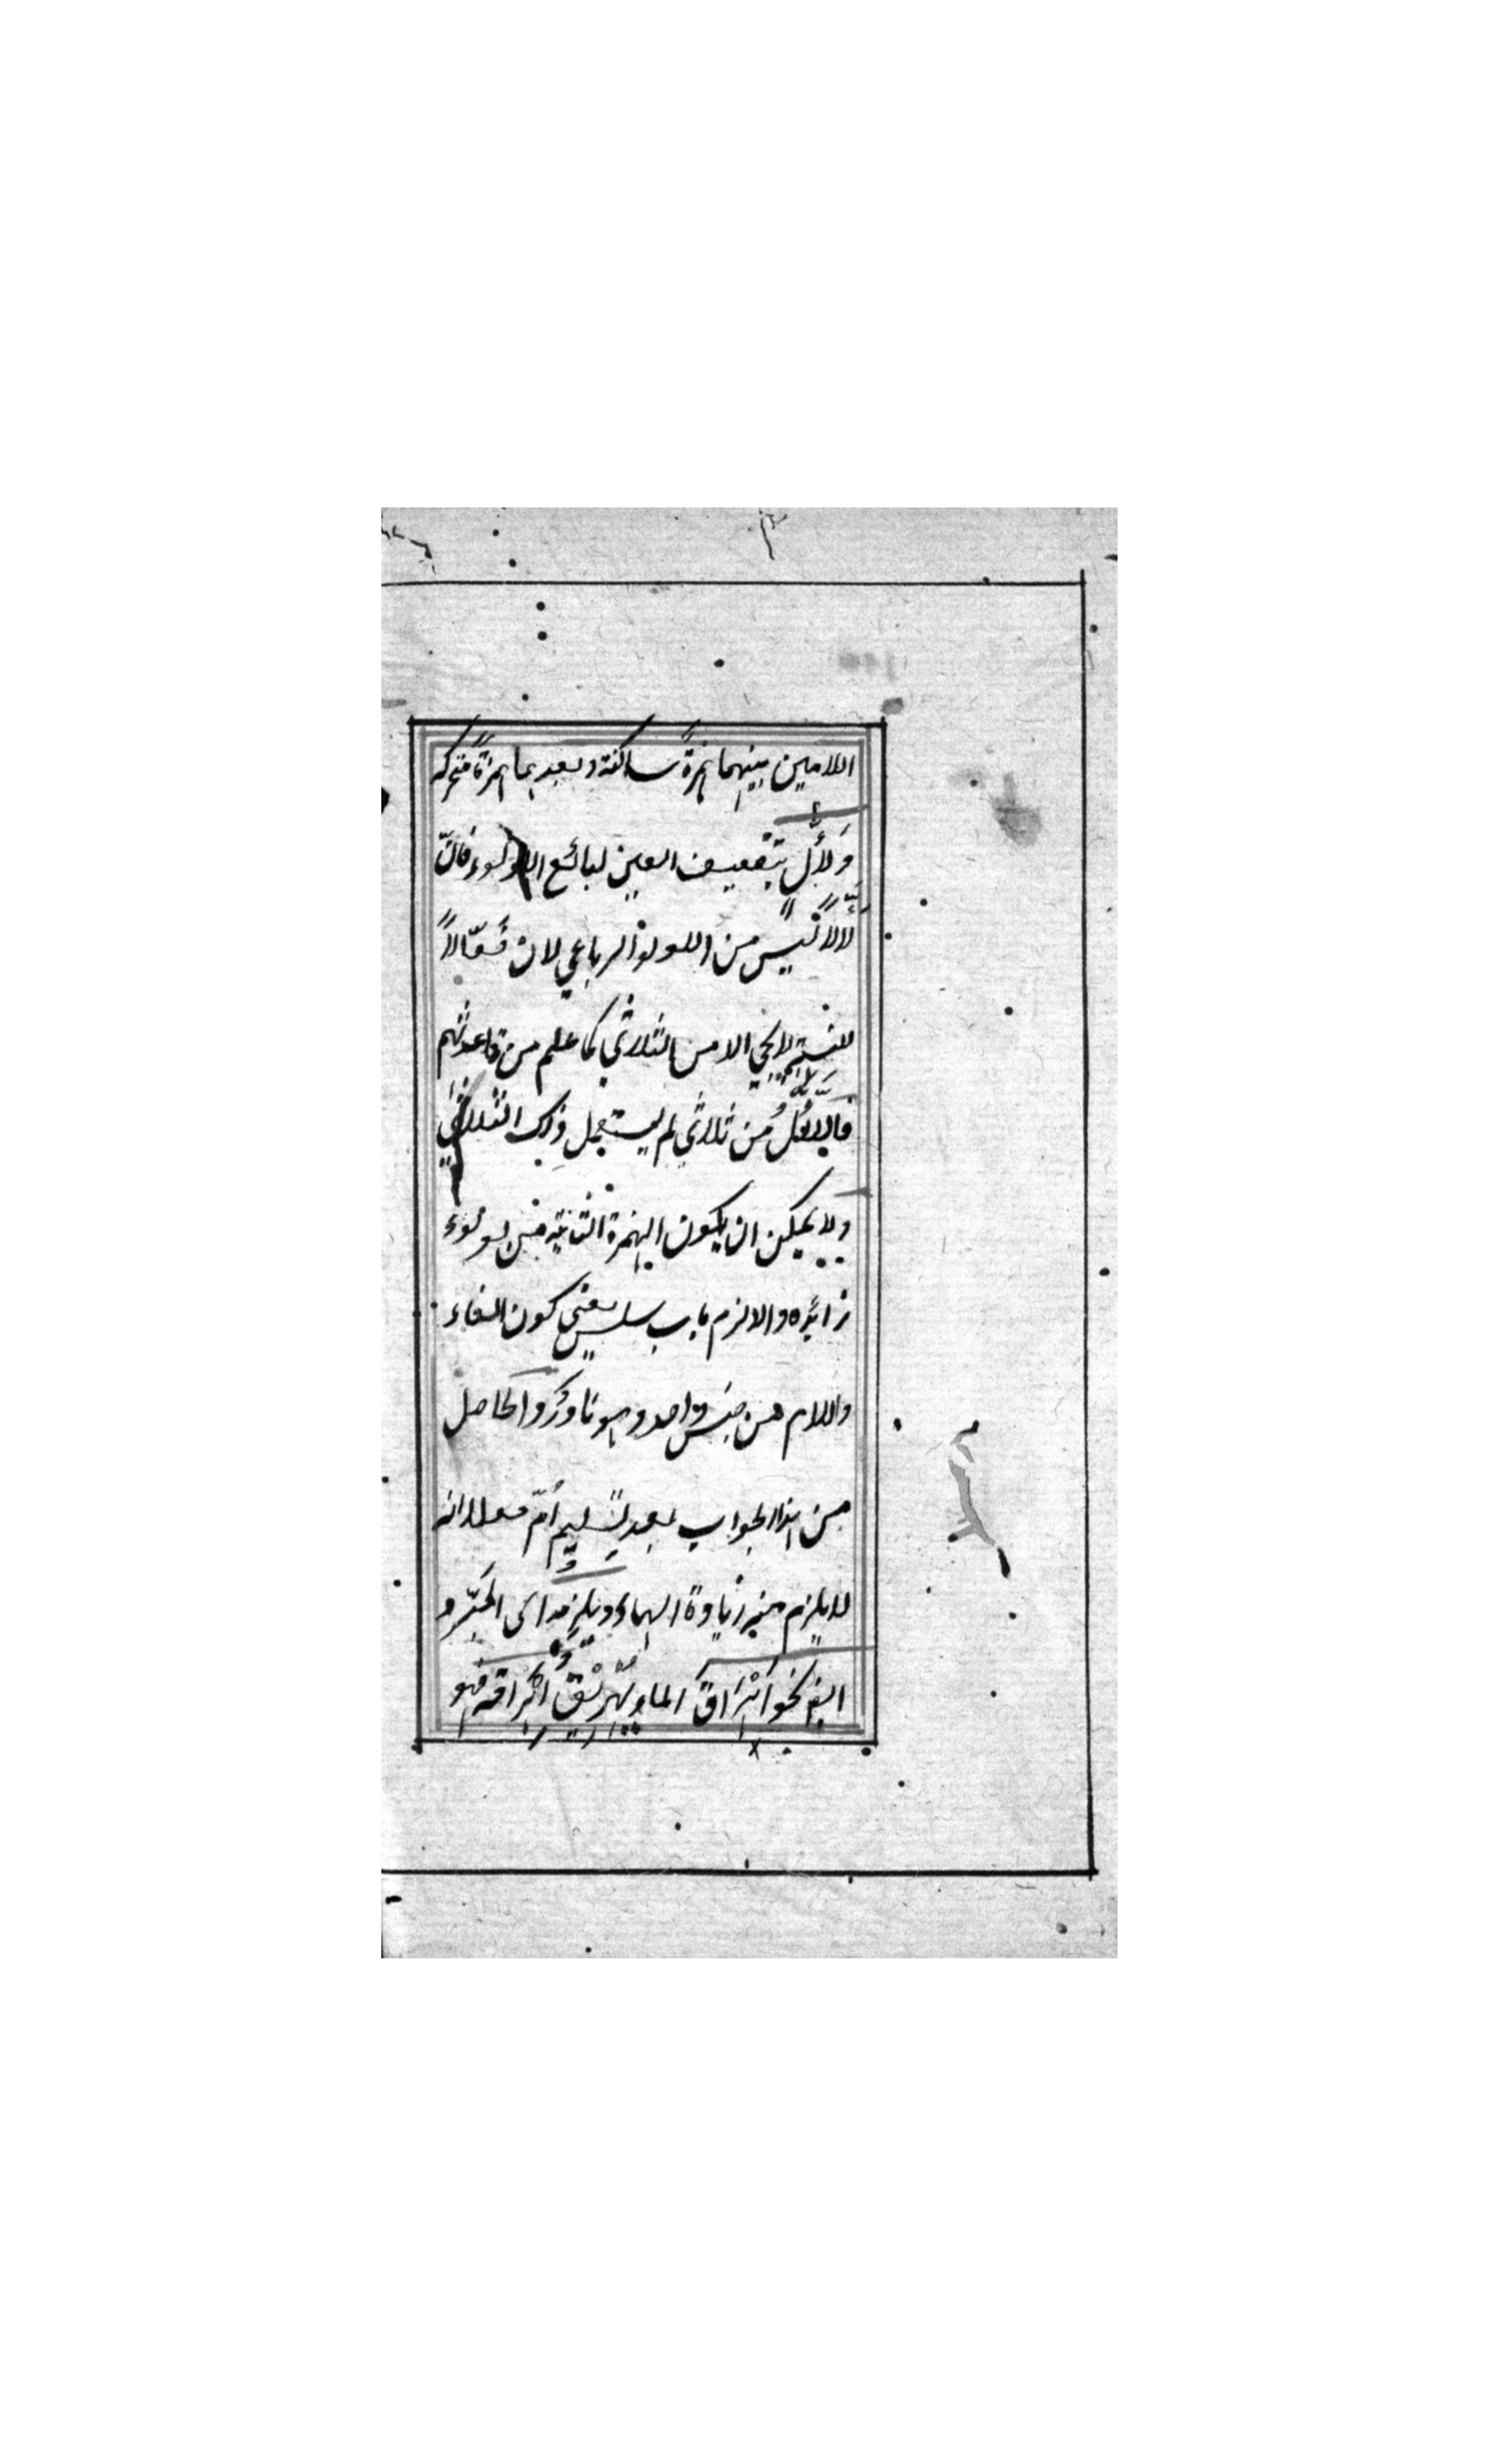 اللامين بينهما همزةً ساكنة وبعدهما همزةً متحركه
وَلأَّل بتضعيف العين لبائع اللولوء فانّ
لألّالاً ليس من اللولو الرباعي لان فَعّالاً
للنسبة لايجي الا من الثلاثي كما علم من قاعدتهم
فلألّال من ثلاثي لم يستعمل ذلك الثلاثي
ولا يمكن ان يكون الهمزة الثانية من لولوء
زائده والا لزم باب سلس يعنى كون الفاء
واللام من جنس واحد وهو نادر و الحاصل
من هذا الجواب بعد تسليم اُمّ فعلا انه
لا يلزم منه زيادة الهاء ويلزم اى المبرّد
ايضا نحو اَهْرَاقَ الماء يُهْرِيْقُ اِهْرَاقة فهو